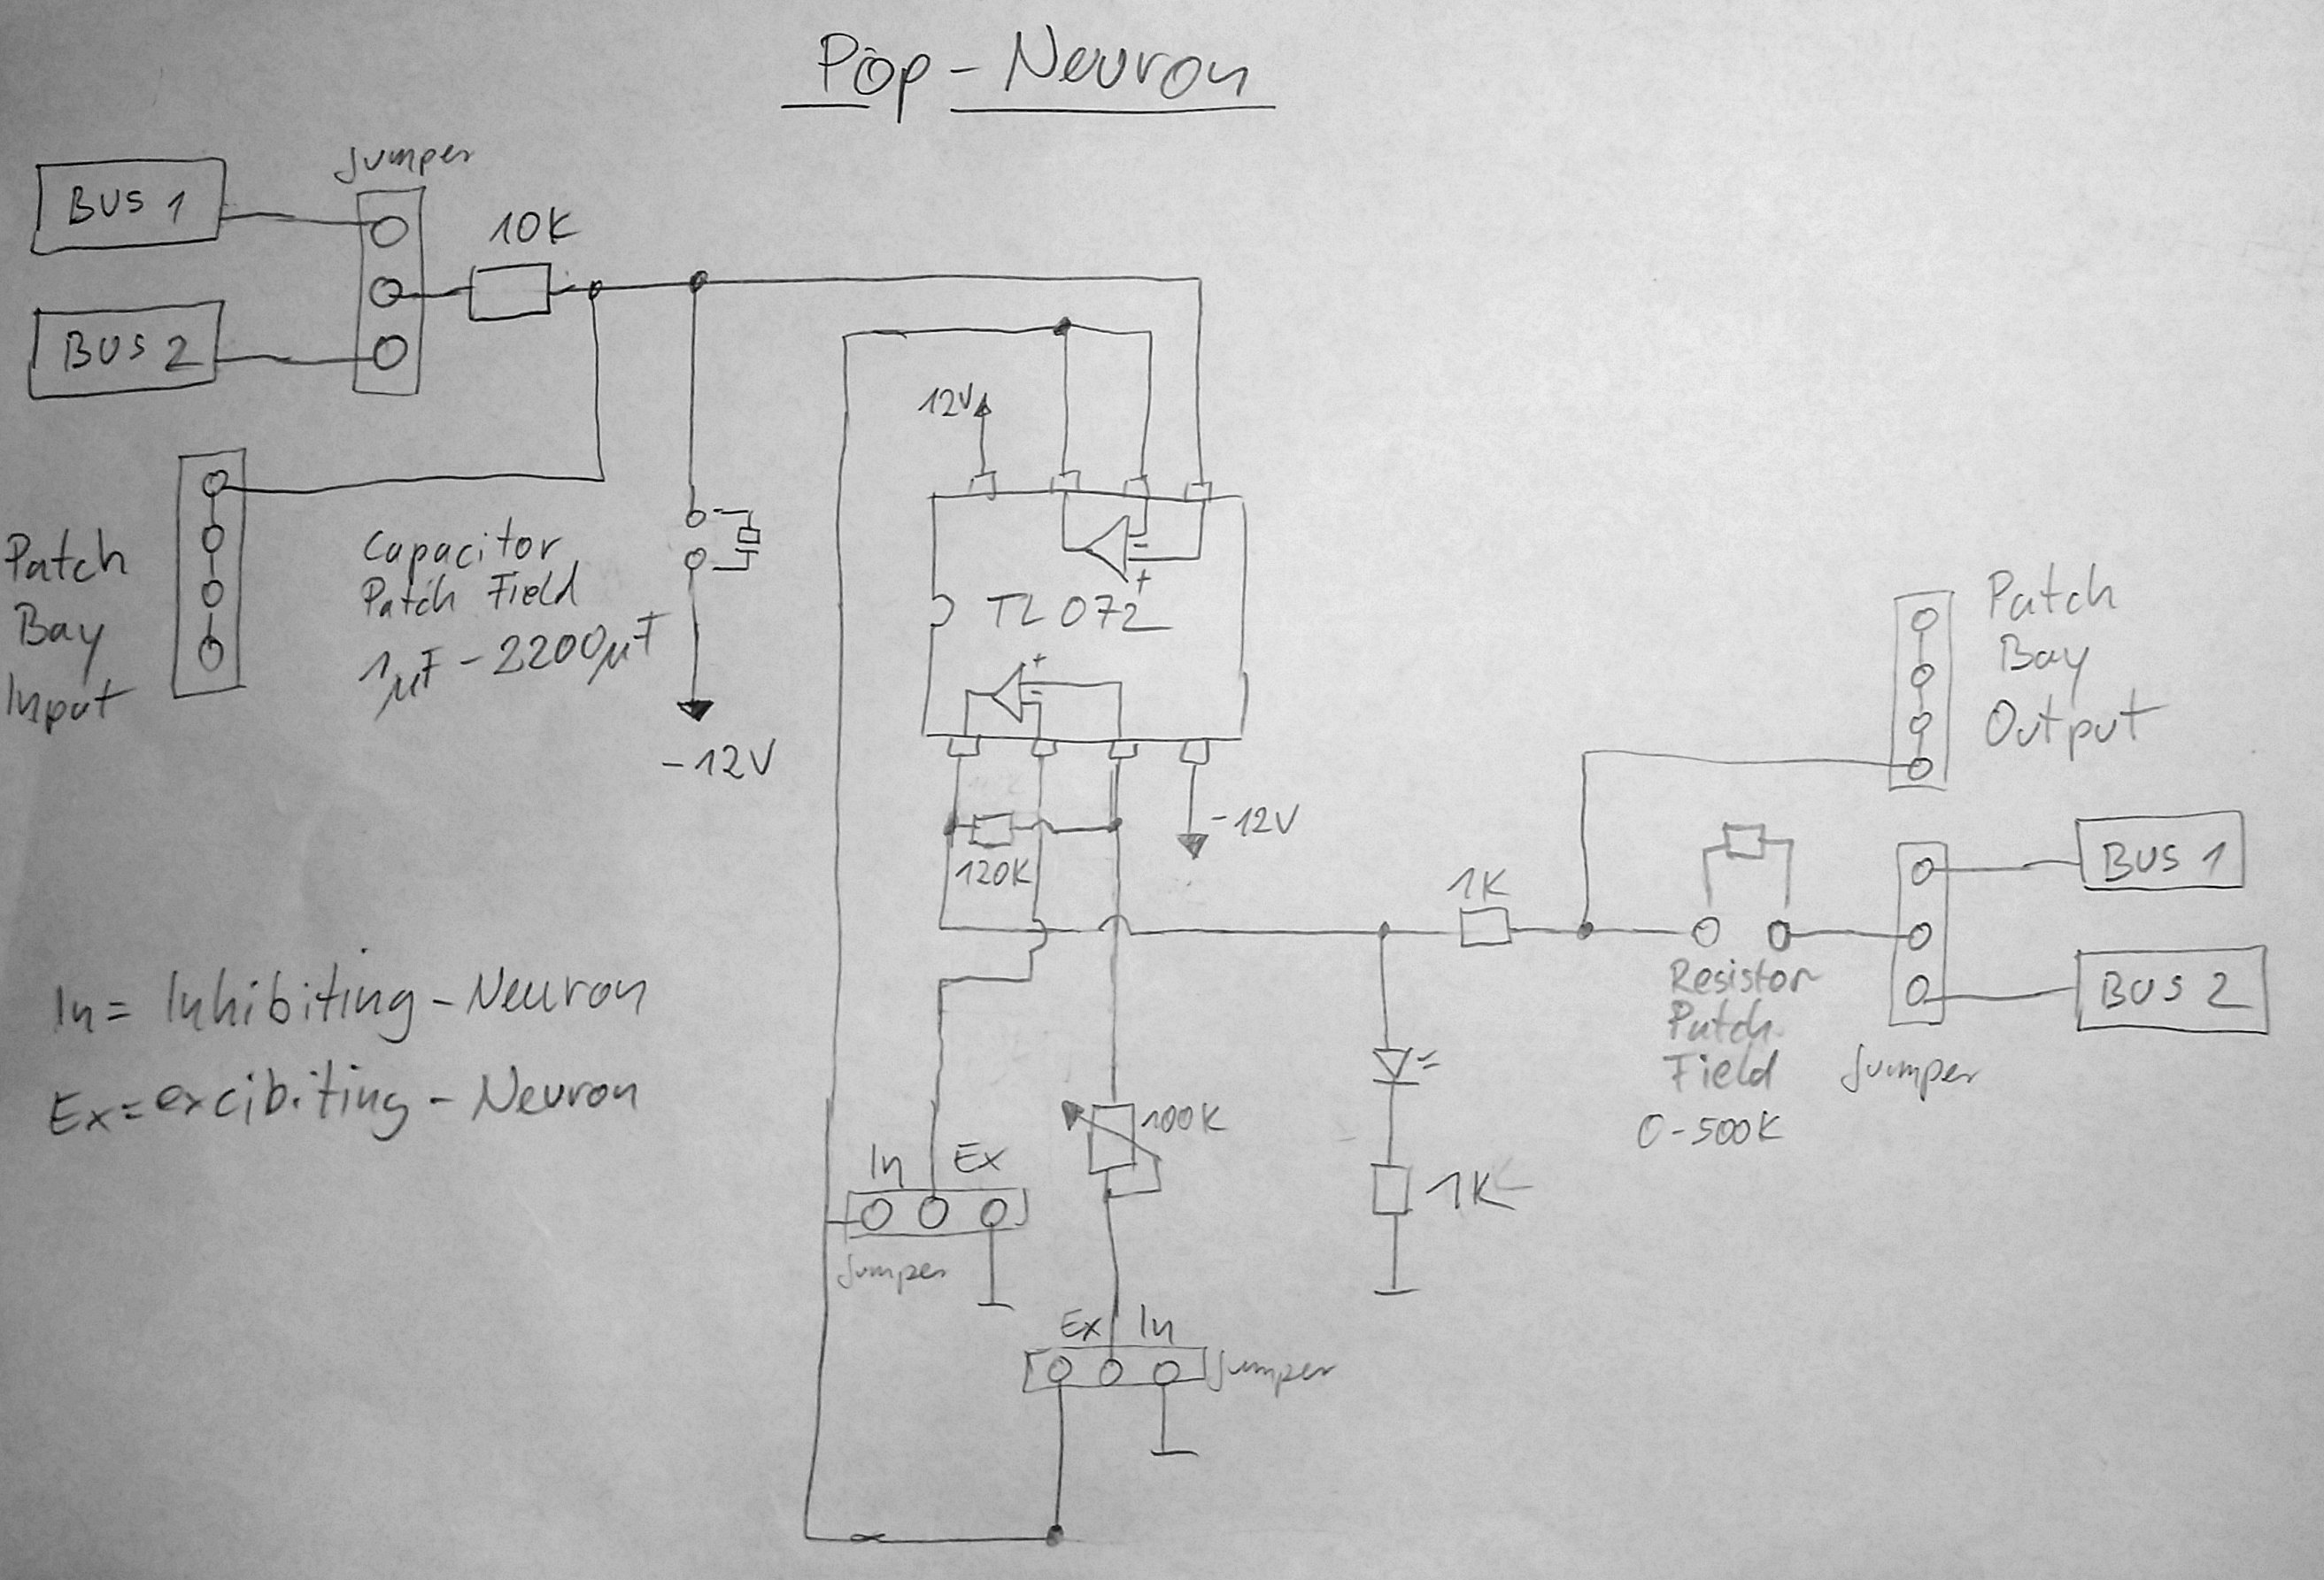 Pop-Neuron
Jumper
BUS 1
10K
BUS 2
12V
Patch
Bay
Input
Capacitor
Patch Field
1µF-2200µF
-12V
TL072
-
+
+
-
-12V
120K
Patch
Bay
Output
1K
BUS 1
BUS 2
Resistor
Patch
Field
0-500K
Jumper
In= Inhibiting-Neuron
Ex=excibiting-Neuron
100K
In Ex
Jumper
1K
Ex In
Jumper